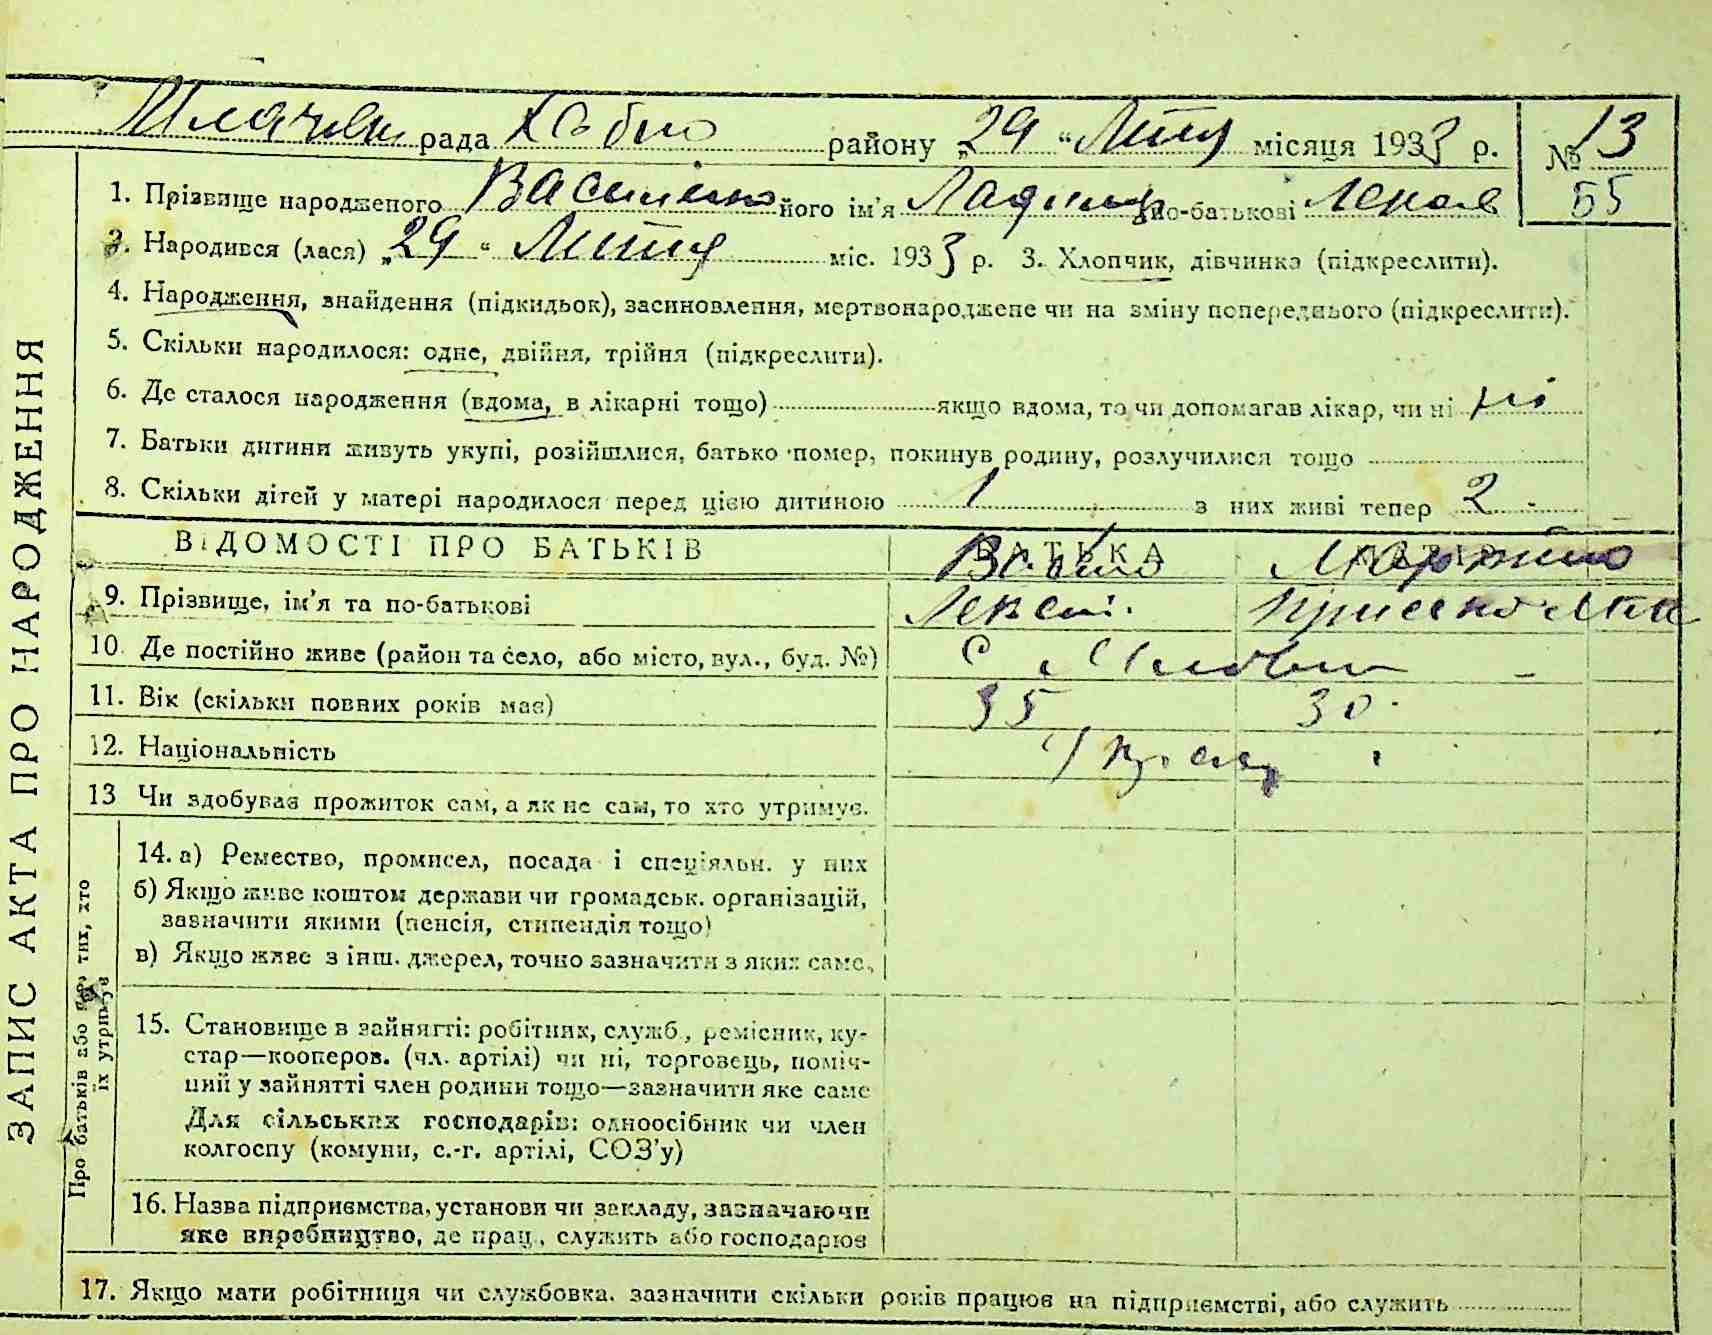 рада району „29 “ місяця 1933 р. № 13
55
1. Прізвище народженого його ім'я по-батькові
2. Народився (лася) „29 “ міс. 1933 р. 3. Хлопчик, дівчинка (підкреслити).
4. Народження, знайдення (підкидьок), засиновлення, мертвонароджене чи на зміну попереднього (підкреслити).
5. Скільки народилося: одне, двійня, трійня (підкреслити).
6. Де сталося народження (вдома, в лікарні тощо) якщо вдома, то чи допомагав лікар, чи ні ні
7. Батьки дитини живуть укупі, розійшлися, батько помер, покинув родину, розлучилися тощо
8. Скільки дітей у матері народилося перед цією дитиною 1 з них живі тепер 2
ВІДОМОСТІ ПРО БАТЬКІВ БАТЬКА
9. Прізвище, ім'я та по-батькові
10. Де постійно живе (район та село, або місто, вул., буд. №) с.
11. Вік (скільки повних років має) 35 30
12. Національність
13 Чи здобував прожиток сам, а як не сам, то хто утримує.
14. а) Ремество, промисел, посада і спеціяльн. у них
б) Якщо живе коштом держави чи громадськ. організацій,
зазначити якими (пенсія, стипендія тощо)
в) Якщо живе з інш. джерел, точно зазначити з яких саме.
15. Становище в зайнятті: робітник, служб., ремісник, ку-
стар—кооперов. (чл. артілі) чи ні, торговець, поміч-
ний у зайнятті член родини тощо—зазначити яке саме
Для сільських господарів: одноосібник чи член
колгоспу (комуни, с.-г. артілі, СОЗ'у)
16. Назва підприємства, установи чи закладу, зазначаючи
яке виробництво, де прац., служить або господарює
17. Якщо мати робітниця чи службовка, зазначити скільки років працює на підприємстві, або служить
ЗАПИС АКТА ПРО НАРОДЖЕННЯ
Про батьків або про тих, хто
їх утримує